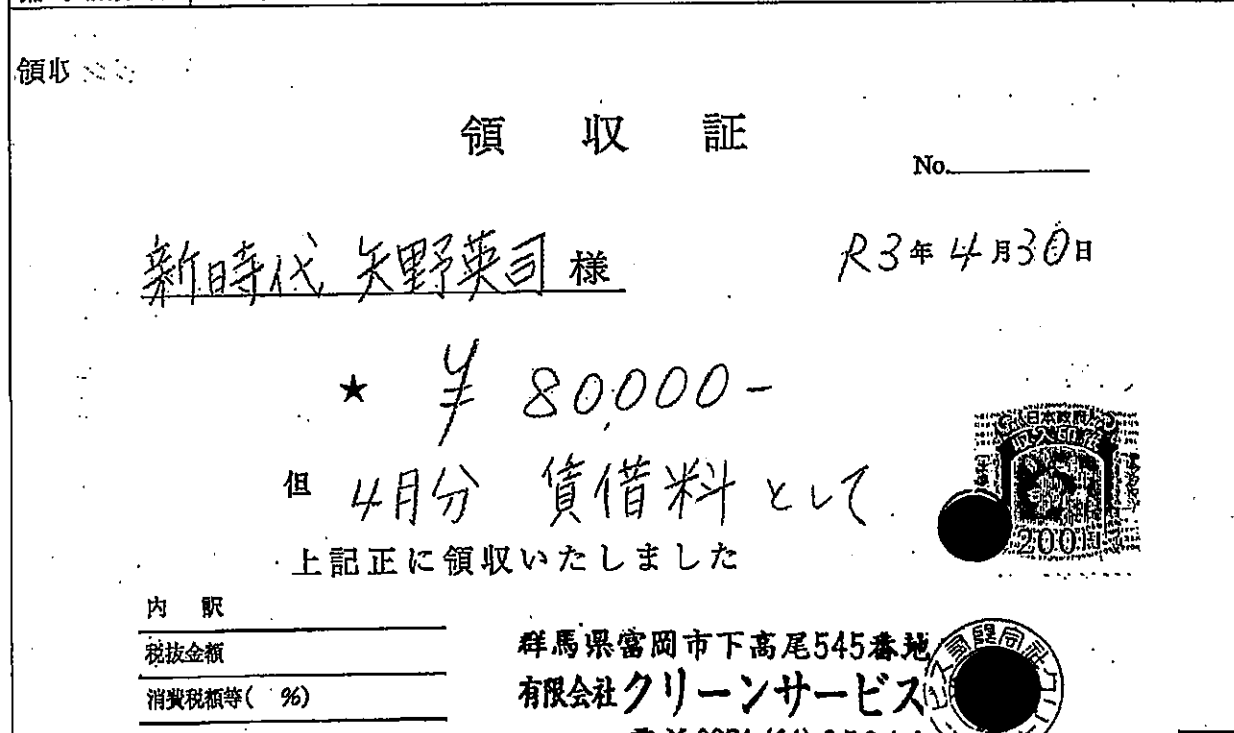 領収
領収証
No.
新時代 矢野英司 様
R3年4月30日
★ ¥80,000-
但 4月分 賃借料として
上記正に領収いたしました
日本政府
収入印紙
200円
内訳
税抜金額
消費税額等( %)
群馬県富岡市下高尾545番地
有限会社クリーンサービス